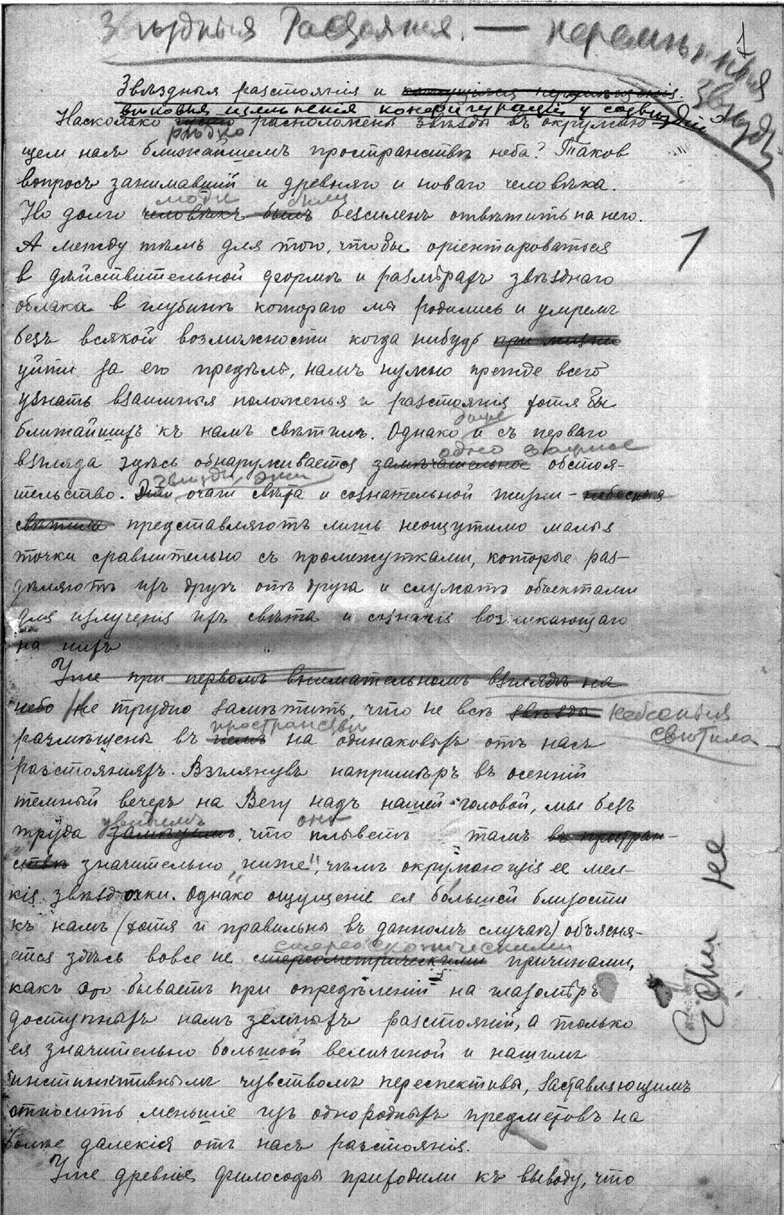 Звѣздныя Разстоянія. — перемѣнныя звѣзды
1
Звѣздныя разстоянія и
вѣковыя измѣненія конфигурацій у созвѣздій
Насколько рѣдко расположены звѣзды въ окружаю-
щемъ насъ ближайшемъ пространствѣ неба? Таковъ
вопросъ занимавшій и древняго и новаго человѣка.
Но долго люди были безсиленъ отвѣтить на него.
А между тѣмъ для того, чтобы оріентироваться
1
в дѣйствительной формѣ и размѣрахъ звѣзднаго
облака в глубинѣ котораго мы родились и умремъ
безъ всякой возможности когда нибудь при жизни
уйти за его предѣлы, намъ нужно прежде всего
узнать взаимныя положенья и разстоянія хотя бы
ближайшихъ къ намъ свѣтилъ. Однако даже и съ перваго
взгляда здѣсь обнаруживается замѣчательное одно важное обстоя-
тельство. Эти звѣзды, эти очаги свѣта и сознательной жизни – небесныя
свѣтила представляютъ лишь неощутимо малыя
точки сравнительно съ промежутками, которые раз-
дѣляютъ ихъ другъ отъ друга и служатъ объектами
для излученія ихъ свѣта и сознанія возникающаго
на нихъ
Уже при первомъ внимательномъ взглядѣ на
небо Не трудно замѣтить, что не всѣ звѣзды небесныя свѣтила
размѣщены въ немъ пространствѣ на одинаковыхъ отъ насъ
разстояніяхъ. Взглянувъ напримѣръ въ осенній
темный вечеръ на Вегу надъ нашей головой, мы безъ
труда увидимъ, что она плыветъ тамъ въ простран-
ствѣ значительно „ниже“, чѣмъ окружающія ее мел-
кія звѣздочки. Однако ощущеніе ея большей близости
къ намъ (хотя и правильны въ данномъ случаѣ) объясня-
ется здѣсь вовсе не стереометрическими стереоскопическими причинами,
какъ это бываетъ при опредѣленій на глазомѣръ
доступныхъ намъ земныхъ разстояній, а только
ея значительно большой величиной и нашимъ
инстинктивнымъ чувствомъ переспективы, заставляющимъ
относить меньшіе изъ однородныхъ предметовъ на
болѣе далекія отъ насъ разстоянія.
Уже древніе философы приходили къ выводу, что
не